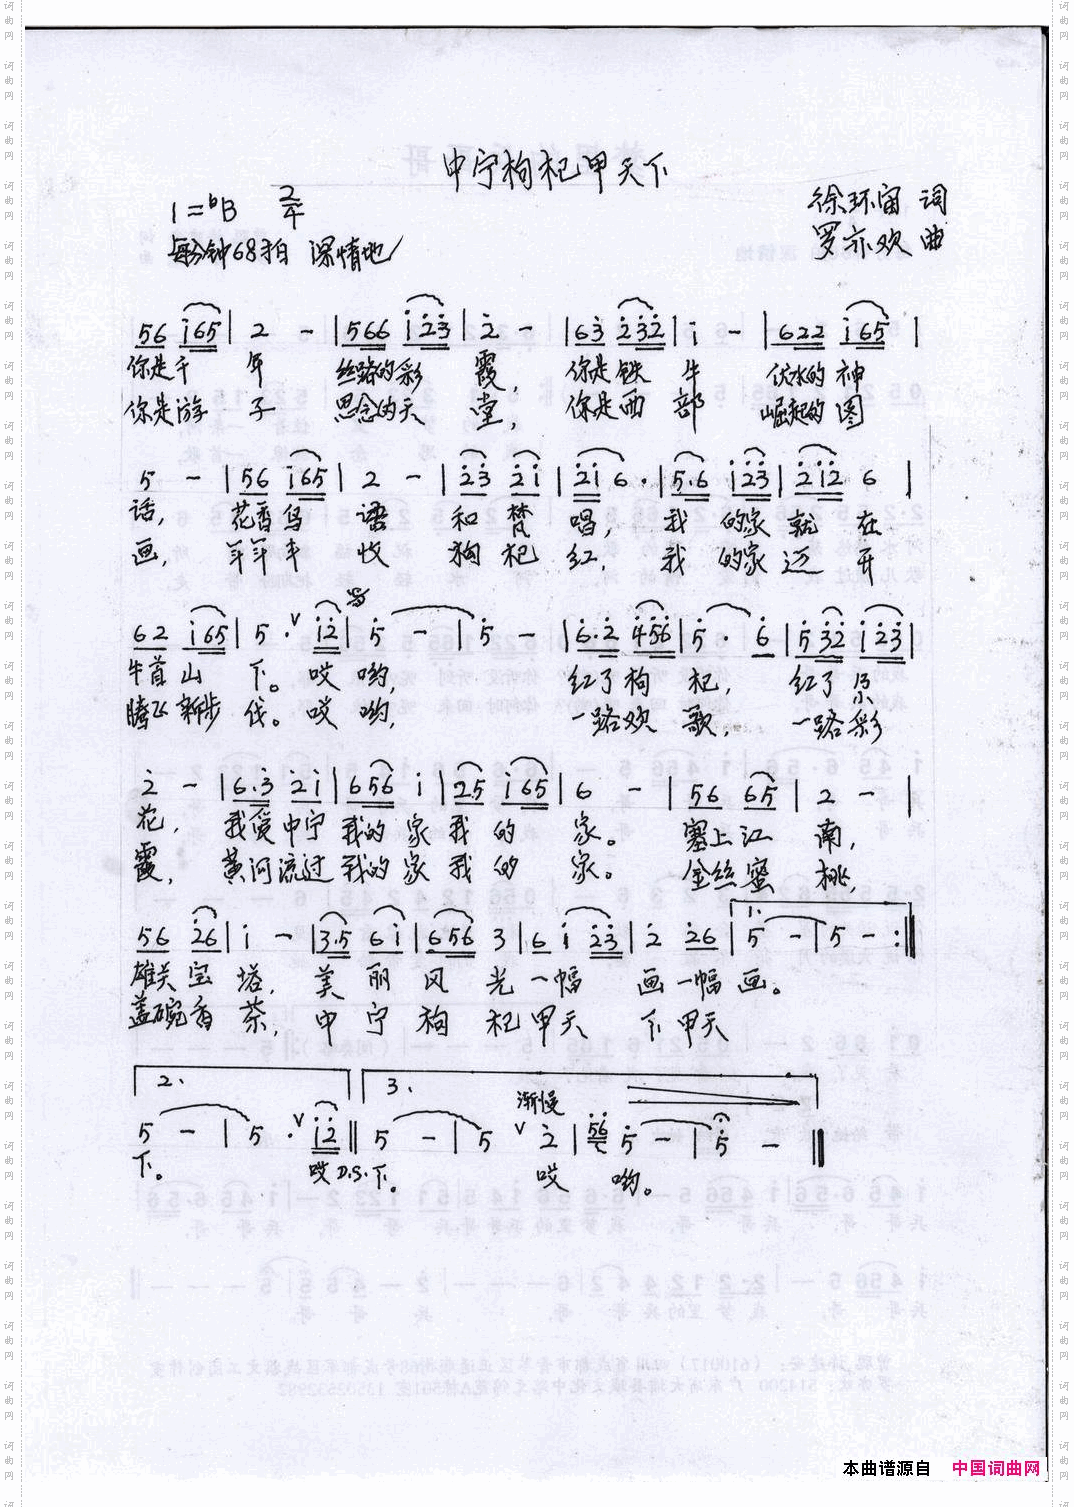 中宁枸杞甲天下
1=ᵇB 2/4
徐环宙 词
每分钟68拍 深情地
罗亦欢 曲
56 i65 | 2 - | 566 i23 | 2 - | 63 232 | i - | 622 i65 |
你是千 年 丝路的彩 霞, 你是铁 牛 伏水的 神
你是游 子 思念的天 堂, 你是西 部 崛起的 图
5 - | 56 i65 | 2 - | 23 2i | 2i 6· | 5·6 i23 | 2i2 6 |
话, 花香鸟 语 和 梵 唱, 我 的家 就 在
画, 年年丰 收 枸 杞 红, 我 的家 迈 开
62 i65 | 5· ∨ i2 | 5 - | 5 - | 6·2 456 | 5· 6 | 532 i23 |
牛首 山 下。 哎 哟, 红了 枸 杞, 红了
腾飞 新步 伐。 哎 哟, 一路欢 歌, 一路 彩
2 - | 6·3 2i | 656 i | 25 i65 | 6 - | 56 65 | 2 - |
花, 我爱中宁 我的 家 我 的 家。 塞上 江 南,
霞, 黄河流过 我的 家 我 的 家。 金丝 蜜 桃,
1.
56 26 | i - | 3·5 6i | 656 3 | 6 i 23 | 2 26 | 5 - | 5 - :||
雄关 宝 塔, 美 丽 风 光 一 幅 画 一幅 画。
盖碗 香 茶, 中 宁 枸 杞 甲 天 下 甲天
2. 3. 渐慢
5 - | 5 · ∨ i2 || 5 - | 5 ∨ 2 | 56 5 - | 5 - ||
下。 哎 D.S. 下。 哎 哟。
本曲谱源自 中国词曲网